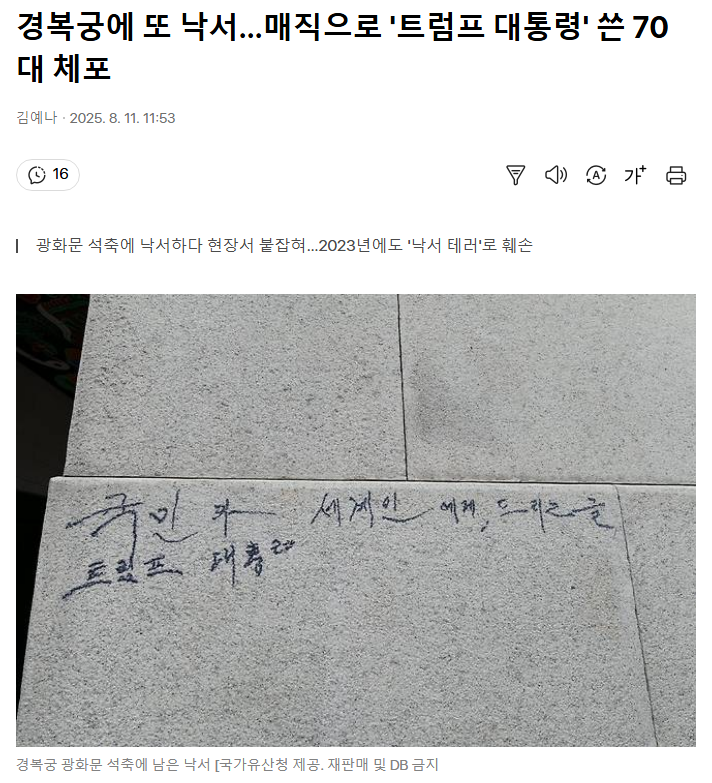 경복궁에 또 낙서…매직으로 '트럼프 대통령' 쓴 70
대 체포
김예나 · 2025. 8. 11. 11:53
16
가+
광화문 석축에 낙서하다 현장서 붙잡혀…2023년에도 '낙서 테러'로 훼손
국민과 세계인에게, 드리는 글
트럼프 대통령
경복궁 광화문 석축에 남은 낙서 [국가유산청 제공. 재판매 및 DB 금지